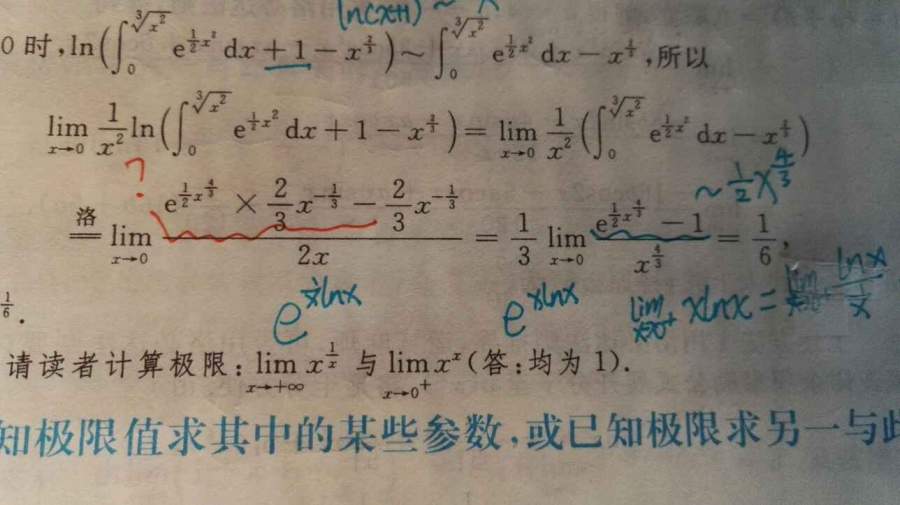 ln(x+1) ~ x
0 时, ln(∫₀^{∛x²} e^{½x²} dx + 1 − x^{2/3}) ~ ∫₀^{∛x²} e^{½x²} dx − x^{2/3}, 所以
lim_{x→0} 1/x² ln(∫₀^{∛x²} e^{½x²} dx + 1 − x^{2/3}) = lim_{x→0} 1/x² (∫₀^{∛x²} e^{½x²} dx − x^{2/3})
? ~ ½x^{4/3}
洛= lim_{x→0} (e^{½x^{4/3}} × 2/3 x^{−1/3} − 2/3 x^{−1/3}) / 2x = 1/3 lim_{x→0} (e^{½x^{4/3}} − 1) / x^{4/3} = 1/6,
e^{1/x lnx} e^{xlnx} lim_{x→0⁺} xlnx = lim lnx / (1/x)
1/6.
请读者计算极限: lim_{x→+∞} x^{1/x} 与 lim_{x→0⁺} x^x (答: 均为 1).
知极限值求其中的某些参数, 或已知极限求另一与此